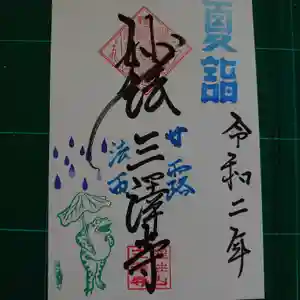 夏詣
令和二年
妙法
甘露
法雨
三澤寺